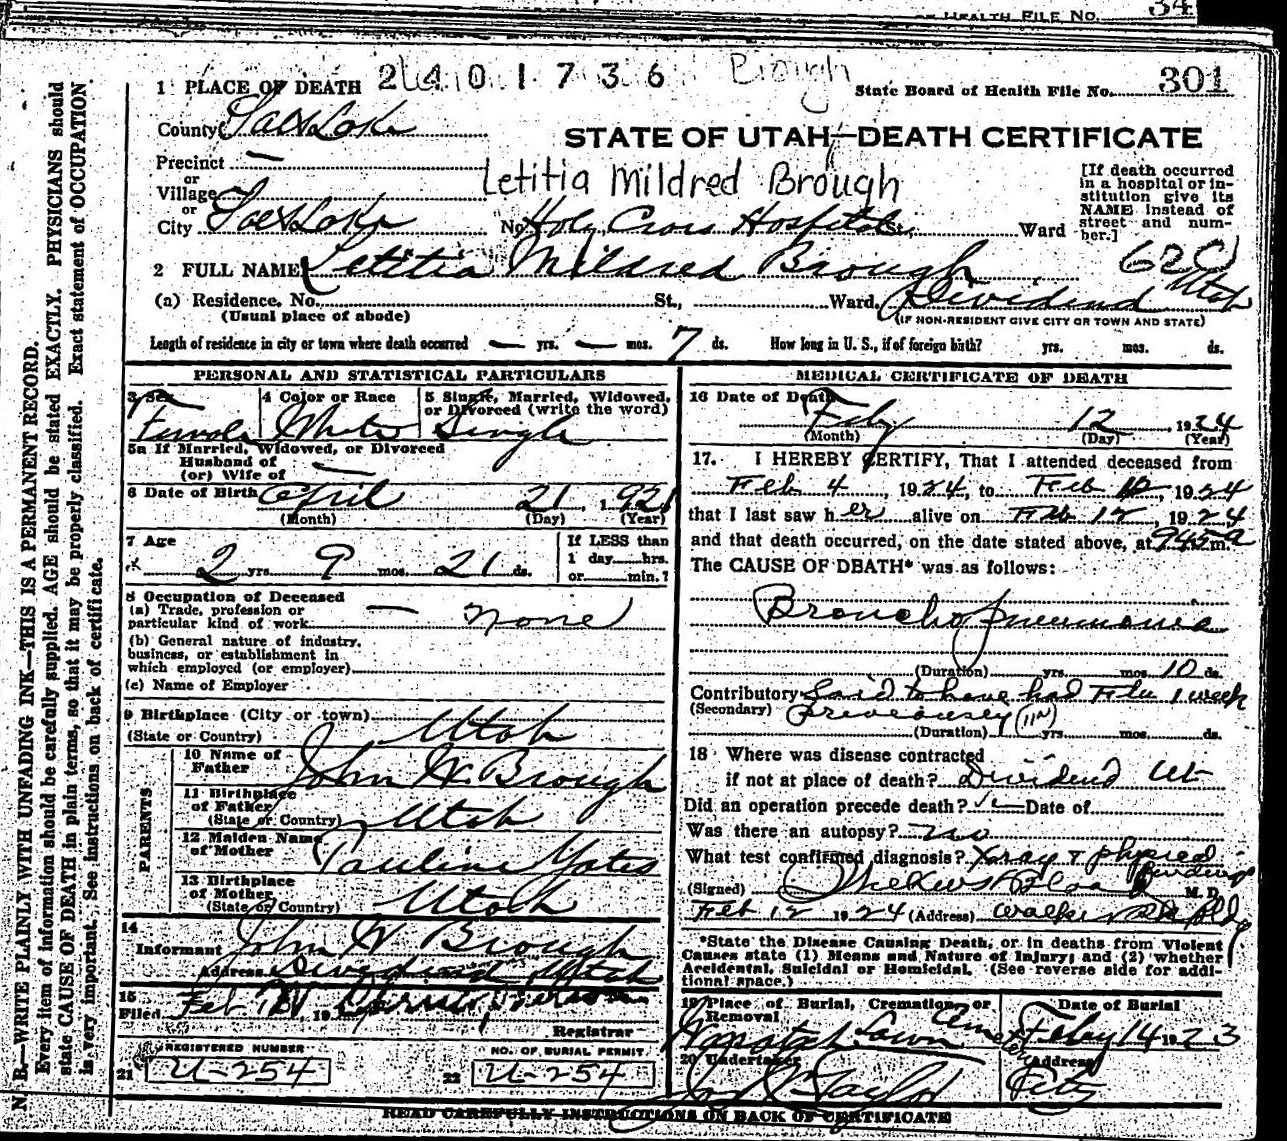 HEALTH FILE NO. 34
2 4 0 1 7 3 6 Brough
1 PLACE OF DEATH
State Board of Health File No. 301
County Salt Lake
STATE OF UTAH—DEATH CERTIFICATE
Precinct —
or
Village
Letitia Mildred Brough
[If death occurred in a hospital or institution give its NAME instead of street and number.]
or
City Salt Lake No. Holy Cross Hospital St., Ward
2 FULL NAME Letitia Mildred Brough 620
(a) Residence. No. St., Ward. Dividend Utah
(Usual place of abode) (IF NON-RESIDENT GIVE CITY OR TOWN AND STATE)
Length of residence in city or town where death occurred — yrs. — mos. 7 ds. How long in U. S., if of foreign birth? yrs. mos. ds.
PERSONAL AND STATISTICAL PARTICULARS
3 Sex 4 Color or Race 5 Single, Married, Widowed, or Divorced (write the word)
Female White Single
5a If Married, Widowed, or Divorced
Husband of
(or) Wife of —
6 Date of Birth April 21, 1921
(Month) (Day) (Year)
7 Age If LESS than
2 yrs. 9 mos. 21 ds. 1 day hrs.
or min.?
8 Occupation of Deceased
(a) Trade, profession or
particular kind of work — none
(b) General nature of industry,
business, or establishment in
which employed (or employer)
(c) Name of Employer
9 Birthplace (City or town)
(State or Country) Utah
PARENTS
10 Name of Father John W. Brough
11 Birthplace of Father (State or Country) Utah
12 Maiden Name of Mother Pauline Yates
13 Birthplace of Mother (State or Country) Utah
14
Informant John W Brough
Address Dividend Utah
15
Filed Feb 19
Registrar
REGISTERED NUMBER NO. OF BURIAL PERMIT
21 U-254 22 U-254
MEDICAL CERTIFICATE OF DEATH
16 Date of Death
Feby 12, 1924
(Month) (Day) (Year)
17. I HEREBY CERTIFY, That I attended deceased from
Feb 4, 1924, to Feb 12, 1924
that I last saw her alive on Feb 12, 1924
and that death occurred, on the date stated above, at 945 a m.
The CAUSE OF DEATH* was as follows:
Broncho pneumonia
(Duration) yrs. mos. 10 ds.
Contributory Said to have had Flu 1 week
(Secondary) previously (11a)
(Duration) yrs. mos. ds.
18 Where was disease contracted
if not at place of death? Dividend Ut
Did an operation precede death? Date of
Was there an autopsy? no
What test confirmed diagnosis? Xray & physical findings
(Signed) M. D.
Feb 12 1924 (Address) Walker Bk Bldg
*State the Disease Causing Death, or in deaths from Violent
Causes state (1) Means and Nature of Injury; and (2) whether
Accidental, Suicidal or Homicidal. (See reverse side for addi-
tional space.)
19 Place of Burial, Cremation or Removal Date of Burial
Wasatch Lawn Cemetery Feby 14 1923
20 Undertaker Address
Taylor City
READ CAREFULLY INSTRUCTIONS ON BACK OF CERTIFICATE
N. B.—WRITE PLAINLY WITH UNFADING INK—THIS IS A PERMANENT RECORD.
Every item of information should be carefully supplied. AGE should be stated EXACTLY. PHYSICIANS should
state CAUSE OF DEATH in plain terms, so that it may be properly classified. Exact statement of OCCUPATION
is very important. See instructions on back of certificate.